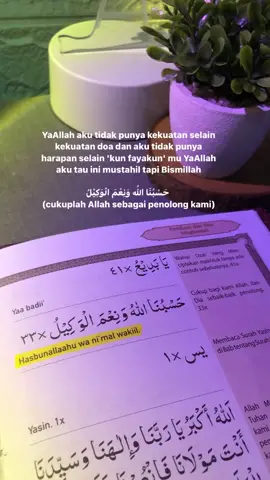 YaAllah aku tidak punya kekuatan selain
kekuatan doa dan aku tidak punya
harapan selain 'kun fayakun' mu YaAllah
aku tau ini mustahil tapi Bismillah
حَسْبُنَا اللهُ وَنِعْمَ الْوَكِيْلُ
(cukuplah Allah sebagai penolong kami)
يَا بَدِيْعُ ×٤١
Yaa badii'
حَسْبُنَا اللهُ وَنِعْمَ الْوَكِيْلُ ×٣٣
Hasbunallaahu wa ni'mal wakiil.
يس ×١
Yasin. 1x
اَللهُ أَكْبَرُ يَا رَبَّنَا وَإِلٰهَنَا وَسَيِّدَنَا
أَنْتَ مَوْلَانَا
Cukup bagi kami Allah, dan
Dia sebaik-baik
Membaca Surah
di Bab tentang Surah
Allah M
Tuhan
kami